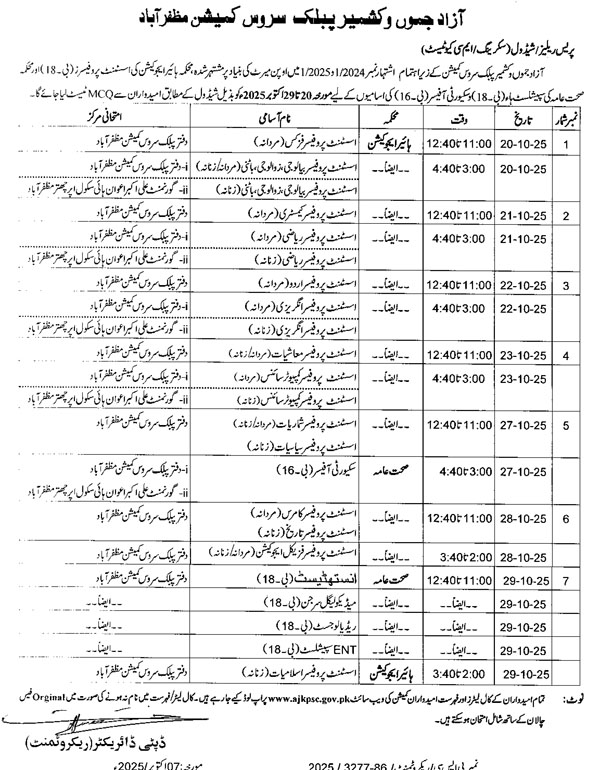 آزاد جموں و کشمیر پبلک سروس کمیشن مظفرآباد
پریس ریلیز/شیڈول (سکریننگ/ایم سی کیو ٹیسٹ)
آزاد جموں و کشمیر پبلک سروس کمیشن کے زیر اہتمام اشتہار نمبر 1/2024 اور 1/2025 میں اوپن میرٹ کی بنیاد پر مشتہر شدہ، محکمہ ہائیر ایجوکیشن کی اسسٹنٹ پروفیسرز (بی۔18) اور محکمہ
صحت عامہ کی سپیشلسٹ ہاء (بی۔18) و سکیورٹی آفیسر (بی۔16) کی اسامیوں کے لیے مورخہ 20 تا 29 اکتوبر 2025 کو بذیل شیڈول کے مطابق امیدواران سے MCQ ٹیسٹ لیا جائے گا۔
نمبر شمار تاریخ وقت محکمہ نام آسامی امتحانی مرکز
1 20-10-25 11:00 تا 12:40 ہائیر ایجوکیشن اسسٹنٹ پروفیسر فزکس (مردانہ) دفتر پبلک سروس کمیشن مظفرآباد
20-10-25 3:00 تا 4:40 --ایضاً-- اسسٹنٹ پروفیسر بیالوجی، زوالوجی، باٹنی (مردانہ/زنانہ) i-دفتر پبلک سروس کمیشن مظفرآباد
اسسٹنٹ پروفیسر بیالوجی، زوالوجی، باٹنی (زنانہ) ii- گورنمنٹ علی اکبر اعوان ہائی سکول اپر چھتر مظفرآباد
2 21-10-25 11:00 تا 12:40 --ایضاً-- اسسٹنٹ پروفیسر کیمسٹری (مردانہ) دفتر پبلک سروس کمیشن مظفرآباد
21-10-25 3:00 تا 4:40 --ایضاً-- اسسٹنٹ پروفیسر ریاضی (مردانہ) i-دفتر پبلک سروس کمیشن مظفرآباد
اسسٹنٹ پروفیسر ریاضی (زنانہ) ii- گورنمنٹ علی اکبر اعوان ہائی سکول اپر چھتر مظفرآباد
3 22-10-25 11:00 تا 12:40 --ایضاً-- اسسٹنٹ پروفیسر اردو (مردانہ) دفتر پبلک سروس کمیشن مظفرآباد
22-10-25 3:00 تا 4:40 --ایضاً-- اسسٹنٹ پروفیسر انگریزی (مردانہ) i-دفتر پبلک سروس کمیشن مظفرآباد
اسسٹنٹ پروفیسر انگریزی (زنانہ) ii- گورنمنٹ علی اکبر اعوان ہائی سکول اپر چھتر مظفرآباد
4 23-10-25 11:00 تا 12:40 --ایضاً-- اسسٹنٹ پروفیسر معاشیات (مردانہ/زنانہ) دفتر پبلک سروس کمیشن مظفرآباد
23-10-25 3:00 تا 4:40 --ایضاً-- اسسٹنٹ پروفیسر کمپیوٹر سائنس (مردانہ) i-دفتر پبلک سروس کمیشن مظفرآباد
اسسٹنٹ پروفیسر کمپیوٹر سائنس (زنانہ) ii- گورنمنٹ علی اکبر اعوان ہائی سکول اپر چھتر مظفرآباد
5 27-10-25 11:00 تا 12:40 --ایضاً-- اسسٹنٹ پروفیسر شماریات (مردانہ/زنانہ) دفتر پبلک سروس کمیشن مظفرآباد
اسسٹنٹ پروفیسر سیاسیات (زنانہ)
27-10-25 3:00 تا 4:40 صحت عامہ سکیورٹی آفیسر (بی۔16) i-دفتر پبلک سروس کمیشن مظفرآباد
ii- گورنمنٹ علی اکبر اعوان ہائی سکول اپر چھتر مظفرآباد
6 28-10-25 11:00 تا 12:40 --ایضاً-- اسسٹنٹ پروفیسر کامرس (مردانہ) دفتر پبلک سروس کمیشن مظفرآباد
اسسٹنٹ پروفیسر تاریخ (زنانہ)
28-10-25 2:00 تا 3:40 --ایضاً-- اسسٹنٹ پروفیسر فزیکل ایجوکیشن (مردانہ/زنانہ) دفتر پبلک سروس کمیشن مظفرآباد
7 29-10-25 11:00 تا 12:40 صحت عامہ انستھٹیسٹ (بی۔18) دفتر پبلک سروس کمیشن مظفرآباد
29-10-25 --ایضاً-- --ایضاً-- میڈیکولیگل سرجن (بی۔18) --ایضاً--
29-10-25 --ایضاً-- --ایضاً-- ریڈیالوجسٹ (بی۔18) --ایضاً--
29-10-25 --ایضاً-- --ایضاً-- ENT سپیشلسٹ (بی۔18) --ایضاً--
29-10-25 2:00 تا 3:40 ہائیر ایجوکیشن اسسٹنٹ پروفیسر اسلامیات (زنانہ) دفتر پبلک سروس کمیشن مظفرآباد
نوٹ: تمام امیدواران کے کال لیٹرز اور فہرست امیدواران کمیشن کی ویب سائٹ www.ajkpsc.gov.pk پر اپ لوڈ کیے جا رہے ہیں۔ کال لیٹر/فہرست میں نام نہ ہونے کی صورت میں Orginal فیس
چالان کے ساتھ شامل امتحان ہو سکتے ہیں۔
ڈپٹی ڈائریکٹر (ریکروٹمنٹ)
2025 / 3277-86 مورخہ: 07 اکتوبر/2025ء